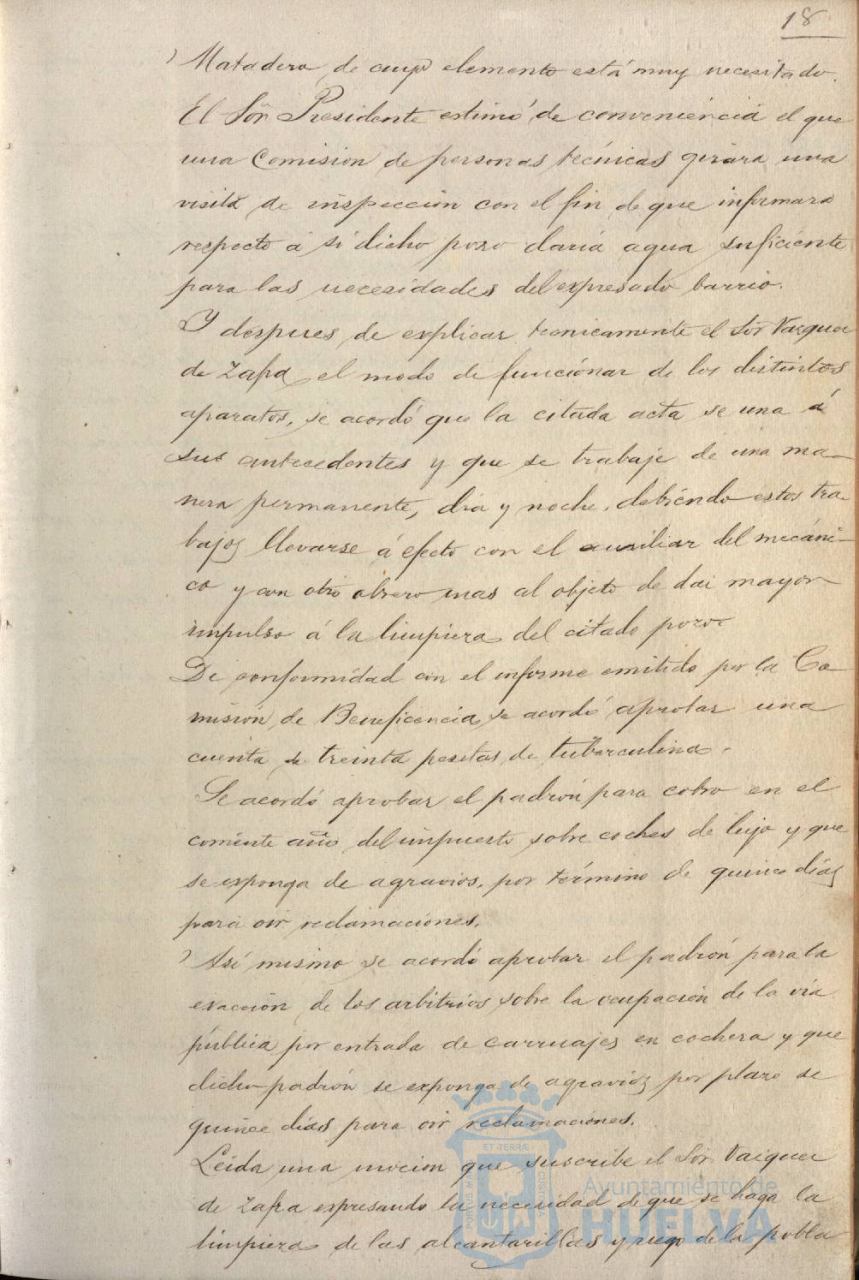 18
Matadero de cuyo elemento está muy necesitado.
El Sōr Presidente estimó de conveniencia el que
una Comisión de personas técnicas girara una
visita de inspección con el fin de que informara
respecto á si dicho pozo daría agua suficiente
para las necesidades del expresado barrio.
Y despues de explicar tecnicamente el Sōr Vazquez
de Zafra el modo de funcionar de los distintos
aparatos, se acordó que la citada acta se una á
sus antecedentes y que se trabaje de una ma-
nera permanente, dia y noche, debiendo estos tra-
bajos llevarse á efecto con el auxiliar del mecáni-
co y con otro obrero mas al objeto de dar mayor
impulso á la limpieza del citado pozo.
De conformidad con el informe emitido por la Co-
misión de Beneficencia se acordó aprobar una
cuenta de treinta pesetas de tuberculina.
Se acordó aprobar el padrón para cobro en el
corriente año del impuesto sobre coches de lujo y que
se exponga de agravios, por término de quince dias
para oir reclamaciones.
Asi mismo se acordó aprobar el padrón para la
exacción de los arbitrios sobre la ocupación de la via
pública por entrada de carruajes en cochera y que
dicho padrón se exponga de agravios por plazo de
quince dias para oir reclamaciones.
Leida una mocion que suscribe el Sōr Vazquez
de Zafra expresando la necesidad de que se haga la
limpieza de las alcantarillas y riego de la pobla
ET TERRÆ
Ayuntamiento de
HUELVA